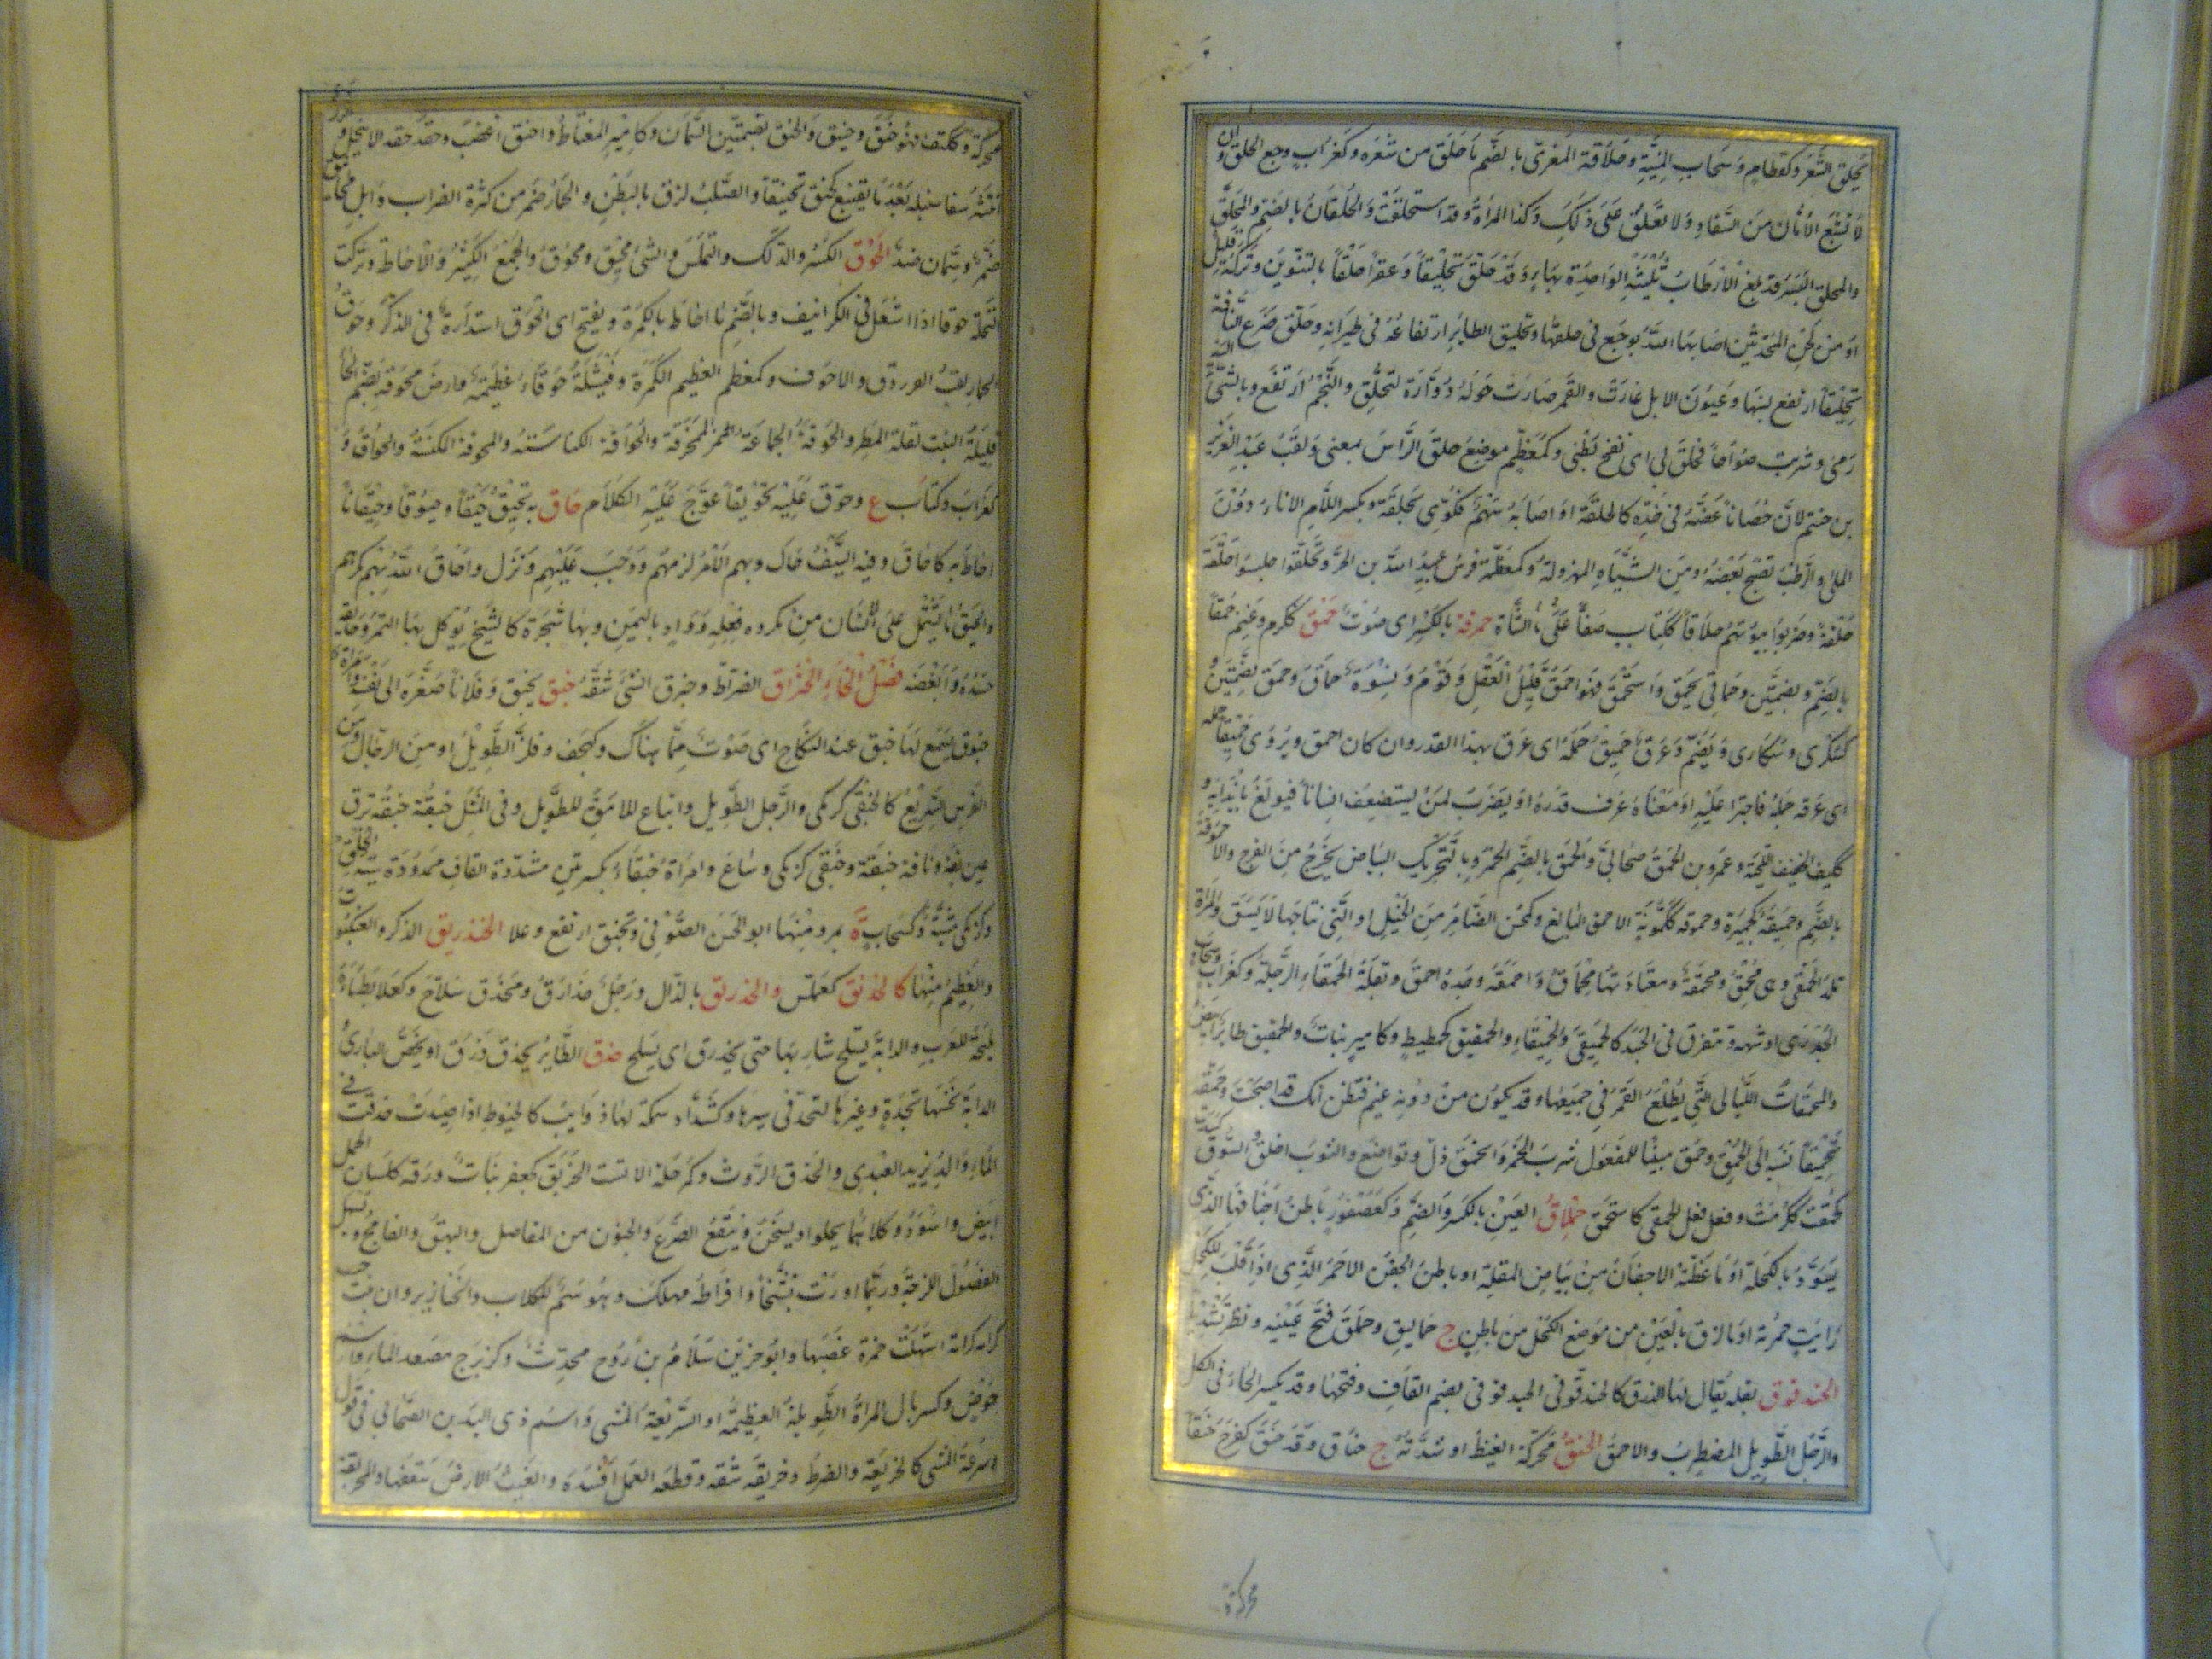 يحلق الشعر وكقطام وسحاب المنية وحلاقة المعزى بالضم ما حلق من شعره وكغراب وجع الحلق وان
لا تشبع الاتان من السفاد ولا تعلق على ذلك وكذا المرأة وقد استحلقت والحلقان بالضم والمحلق
والمحلقن البسر قد بلغ الارطاب ثلثيه الواحدة بهاء وقد حلق تحليقا وعقرا حلقا بالتنوين وتركه قليل
او من لحن المحدثين اصابها الله بوجع في حلقها وتحليق الطاير ارتفاعه في طيرانه وحلق ضرع الناقة
تحليقا ارتفع لبنها وعيون الابل غارت والقمر صارت حوله دوارة كتحلق والنجم ارتفع وبالشئ اليه
رمى وشربت صواحا فحلق بي اى نفخ بطنى وكمعظم موضع حلق الراس بمعنى ولقب عبد العزى
بن حنتم لان حصانا عضه في خده كالحلقة او اصابه سهم فكوى بحلقة وبكسر اللام الاناء دون
الملئ والرطب نضج بعضه ومن الشياه المهزولة وكمعظمة فرس عبيد الله بن الحر وتحلقوا جلسوا حلقة
حلقة وضربوا بيوتهم حلاقا ككتاب صفا على الشاة حمرقة بالكسر اى صوت حمق ككرم وغنم حمقا
بالضم وبضمتين وحماقة يحمق واستحمق فهو احمق قليل العقل وقوم ونسوة حماق وحمق بضمتين
كسكرى وسكارى ويضم وعرف حميق جمله اى عرف بهذا القدر وان كان احمق ويروى حميقا جمله
اى عرفه جمله فاجترا عليه او معناه عرف قدره او يضرب لمن يستضعف انسانا فيولع بايذايه و
ككيف الخفيف اللحية وعمرو بن الحمق صحابى والحمق بالضم الخمر وبالتحريك البياض يخرج من الفرج والاحموقة
بالضم وحميقة كجميزة وحموقة كمكوية الاحمق البالغ وكمحسن الضامر من الخيل او التى نتاجها لا يسبق والمرأة
تلد الحمقى وهى محمق ومحمقة ومعتادتها محماق واحمقه وجده احمق وبقلة الحمقاء الرجلة وكغراب وسحاب
الجدرى او شبهه يتفرق في الجسد كالحميقى والحميقاء والحمقيق كحمطيط وكامير نبات والحمقيق طاير ابيض
والمحمقات الليالى التى يطلع القمر في جميعها وقد يكون من دونه غيم فتظن انك قد اصبحت وحمقه
تحميقا نسبه الى الحمق وحمق مبنيا للمفعول شرب الخمر وانحمق ذل وتواضع والثوب اخلق والسوق كسدت
كحمقت ككرمت وفعل فعل الحمقى كاستحمق حملاق العين بالكسر والضم وكعصفور باطن اجفانها الذى
يسود بالكحلة او ما غطته الاجفان من بياض المقلة او باطن الجفن الاحمر الذى اذا قلب للكحل
رايت حمرته او ما لزق بالعين من موضع الكحل من باطن ج حماليق وحملق فتح عينيه ونظر شديدا
الحندقوق بقلة يقال لها الذرق كالحندقوقى الحندقوقى بضم القاف وفتحها وقد يكسر الحاء في الكل
والرجل الطويل المضطرب والاحمق الحنق محركة الغيظ او شدته ج حناق وقد حنق كفرح حنقا
محركة
محركة وككتف فهو حنق وحنيق والحنق بضمتين السمان وكامير المغتاظ واحنق اغضب وحقد حقدا لا ينحل و
انتشر سفا سنبله بعد ما يقنبع كحنق تحنيقا والصلب لزق بالبطن والحمار ضمر من كثرة الضراب وابل محانيق
ضمر وسمان ضد الحوق الكنس والدلك والتمليس والشئ محيق ومحوق والجمع الكثير والاحاطة وتركت
النخلة حوقا اذا اشعل في الكرانيف وبالضم ما احاط بالكمرة ويفتح اى الحوق استدارة في الذكر وحوق
الحمار لقب الفرزدق والاحوق وكمعظم العظيم الكمرة وفيشلة حوقاء عظيمة وارض محوقة بضم الحاء
قليلة النبت لقلة المطر والحوقة الجماعة الممخرقة والحواقة الكناسة والمحوقة المكنسة والحواق و
كغراب وكتاب ع وحوق عليه تحويقا عوج عليه الكلام حاق به يحيق حيقا وحيوقا وحيقانا
احاط به كاحاق وفيه السيف حاك وبهم الامر لزمهم ووجب عليهم ونزل واحاق الله بهم مكرهم
والحيق ما يشتمل على الانسان من مكروه فعله وواد باليمن وبهاء شجرة كالشيح يؤكل بها التمر وحايقه
حسده وابغضه فصل الخاء الخبراق الضراط وخبرق الشئ شقه خبق يخبق وفلانا صغره الى نفسه وامرأة
خبوق يسمع لها خبق عند النكاح اى صوت مما هناك وكهجف وفلز الطويل او من الرجال ومن
الفرس السريع كالخبقى كزمكى والرجل الطويل واتباع للامق للطويل وفى المثل خبقة خبقة ترق
عين بقة وناقة خبقة وخبقى كزمكى وساع وامرأة خبقاء بكسرتين مشددة القاف ممدودة سيئة الخلق
وكزمكى مشية وكسحاب ة بمرو منها ابو الحسن الصوفى وتخبق ارتفع وعلا الخدريق الذكر والعنكبوت
والعظيم منها كالخدنق كعملس والخذرنق بالذال ورجل خذارق ومخذرق سلاح وكعلابط ماءة
ملحة للعرب والدابة يسلح شاربها حتى يخذرق اى يسلح خذق الطاير يخذق ذرق او يخص البازى
الدابة نخسها بحديدة وغيرها لتجد في سيرها وكشداد سمكة لها ذوايب كالخيوط اذا صيدت خذقت في
الماء ووالد يزيد العبدى والخذق الروث وكمرحلة الاست الخربق كجعفر نبات ورقه كلسان الحمل
ابيض واسود وكلاهما يحلوا ويسخن وينفع الصرع والجنون من المفاصل والبهق والفالج و يسهل
الفضول اللزجة وربما اورث تشنجا وافراطه مهلك وهو سم للكلاب والخنازير وان نبت بجنب
كرمة كرامة اسهلت خمرة عنبها وابو خربق سلام بن روح محدث وكزبرج مصعد الماء واسم
حوض وكسربال المرأة الطويلة العظيمة او السريعة المشى واسم ذى اليدين الصحابى في قول
وسرعة المشى كالخربقة والضرط وخربقه شقه وقطعه العمل افسده والغيث الارض شققها والمخربقة